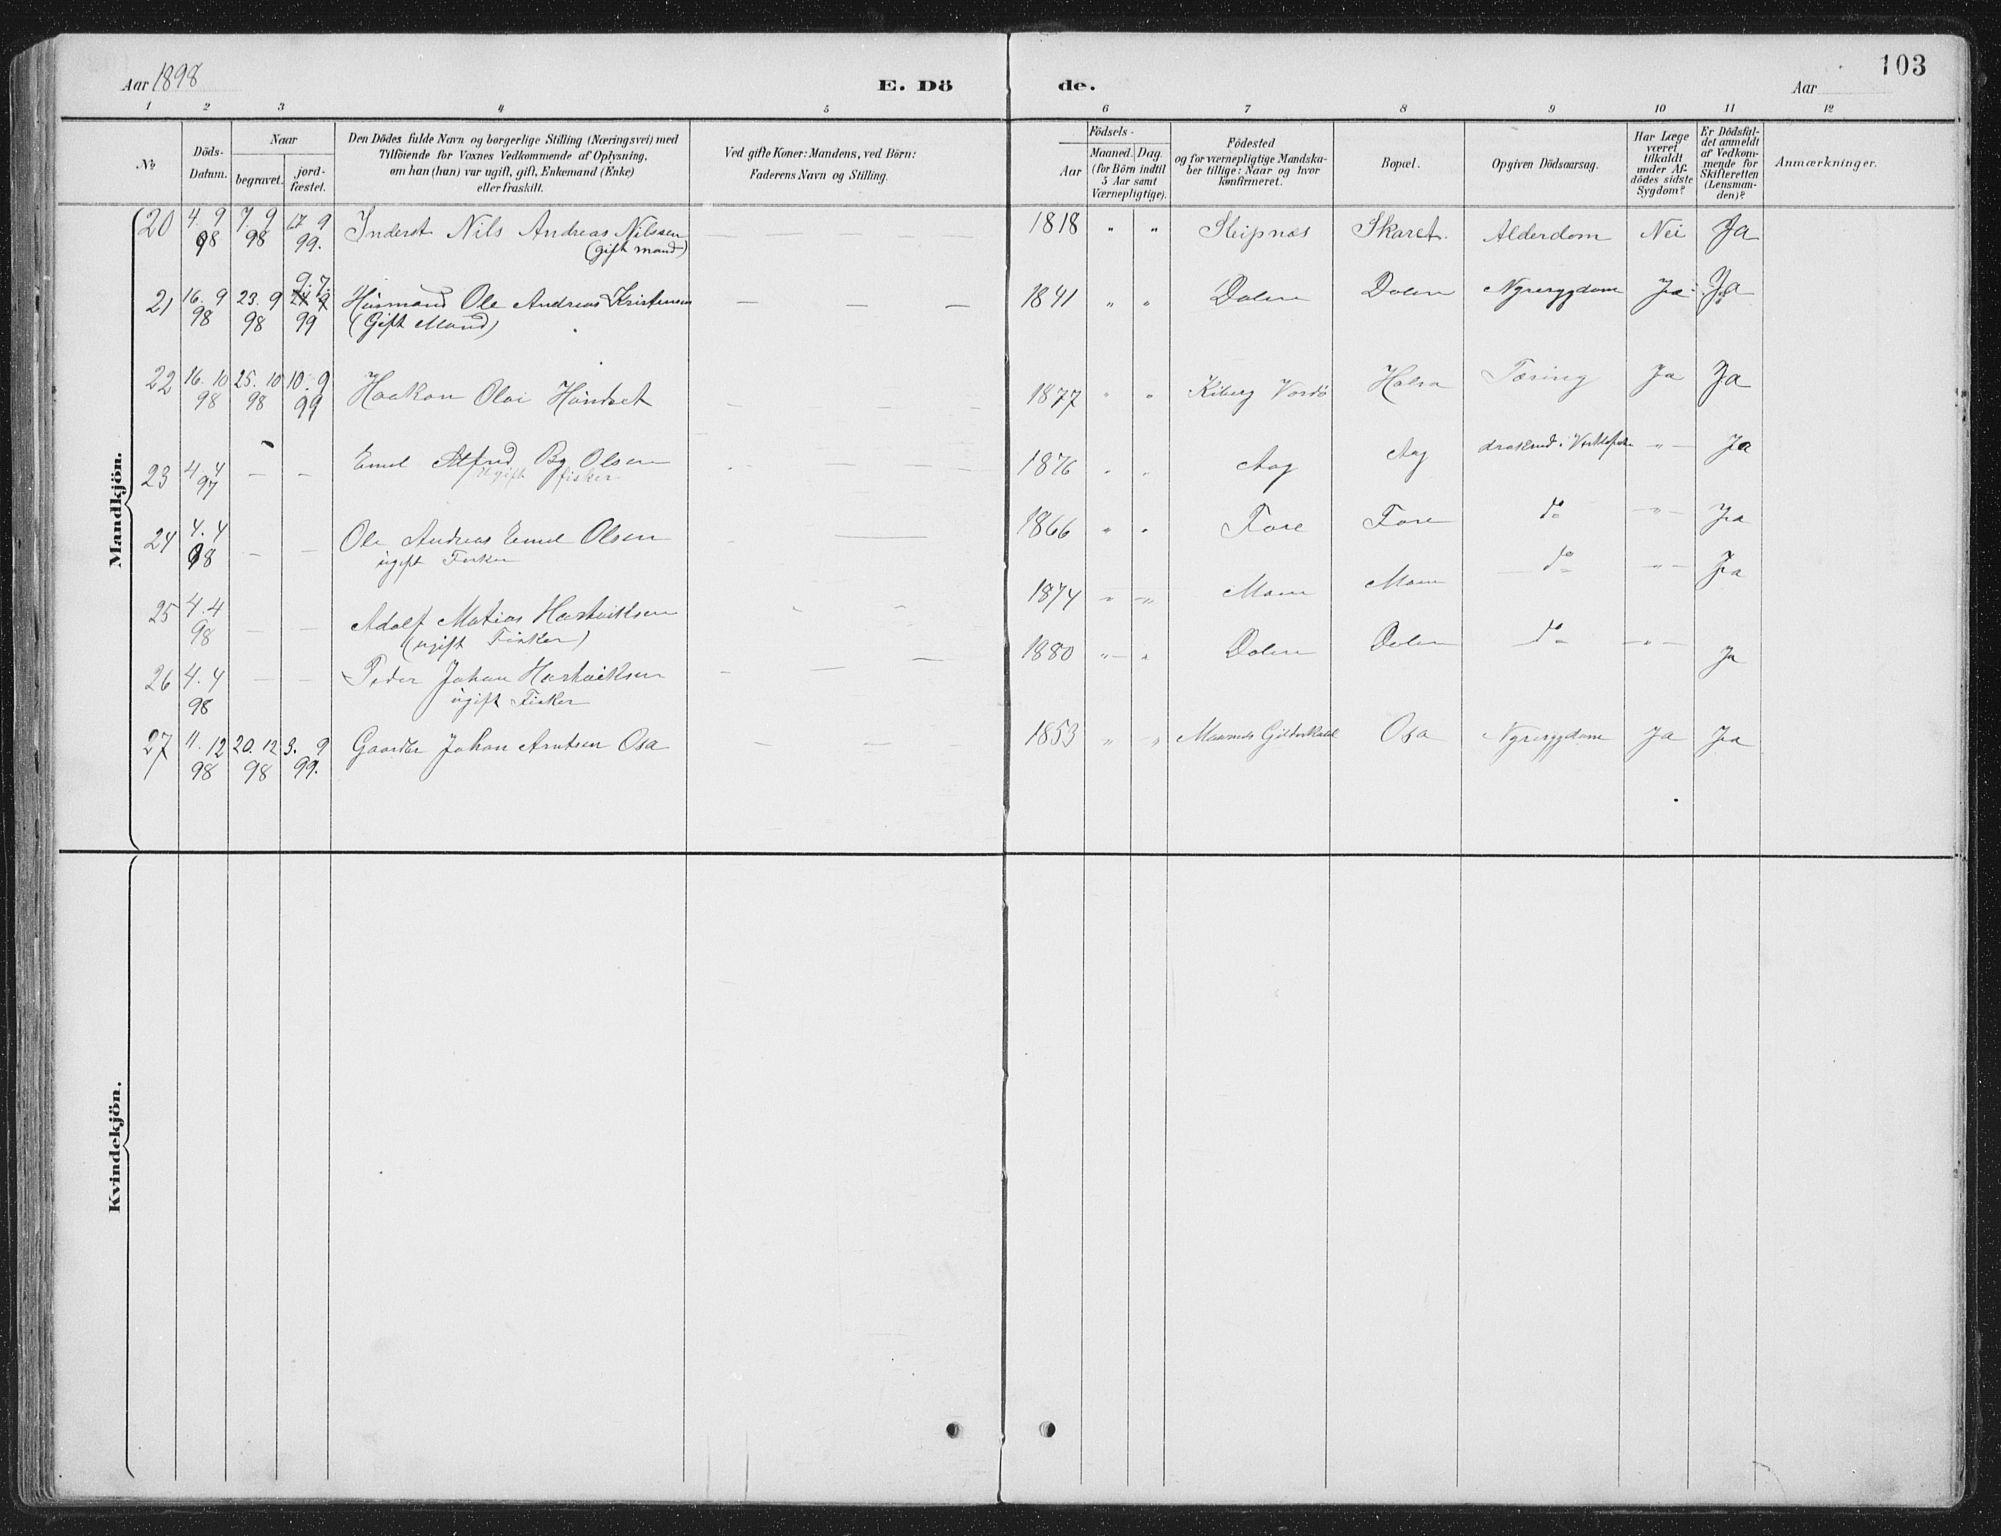 103
Aar 1898
E. Dö
de.
Aar
1 2 3 4 5 6 7 8 9 10 11 12
No
Döds-
Datum.
Naar
begravet.
jord-
fæstet.
Den Dödes fulde Navn og borgerlige Stilling (Næringsvei) med
Tilföiende for Voxnes Vedkommende af Oplysning,
om han (hun) var ugift, gift, Enkemand (Enke)
eller fraskilt.
Ved gifte Koner: Mandens, ved Börn:
Faderens Navn og Stilling.
Födsels-
Aar
Maaned. Dag.
(for Börn indtil
5 Aar samt
Værnepligtige).
Födested
og for værnepligtige Mandska-
ber tillige: Naar og hvor
konfirmeret.
Bopæl.
Opgiven Dödsaarsag.
Har Læge
været
tilkaldt
under Af-
dödes sidste
Sygdom?
Er Dödsfal-
det anmeldt
af Vedkom-
mende for
Skifteretten
(Lensman-
den)?
Anmærkninger.
Mandkjön.
20 4. 9 7. 9 17. 9 Inderst Nils Andreas Nilssen 1818 " " Sleipnæs Skaret. Alderdom Nei Ja
98 98 99. (gift mand)
9. 7.
21 16. 9 23. 9 Husmand Ole Andreas Kristensen — — — 1841 " " Dalen Dalen Nyresygdom Ja Ja
98 98 99 (Gift Mand)
22 16. 10 25. 10 10. 9 Haakon Olai 1877 " " Kiberg Vardö Halsa Tæring Ja Ja
98 98 99
23 4. 4 — — Emil Alfred Bg Olsen 1876 " " Aag Aag druknet i " Ja
97 ugift fisker
24 4. 4 — — Ole Andreas Emil Olsen 1866 " " Fore Fore do " Ja
98 ugift Fisker
25 4. 4 — — Adolf Matias Hartviksen 1874 " " do " Ja
98 (ugift Fisker)
26 4. 4 — — Peder Johan Hartviksen 1880 " " Dalen Dalen do " Ja
98 ugift Fisker
27 11. 12 20. 12 3. 9 Gaardbr Johan Arntsen Osa — — 1853 " " Osa Nyresygdom Ja Ja
98 98 99.
Kvindekjön.